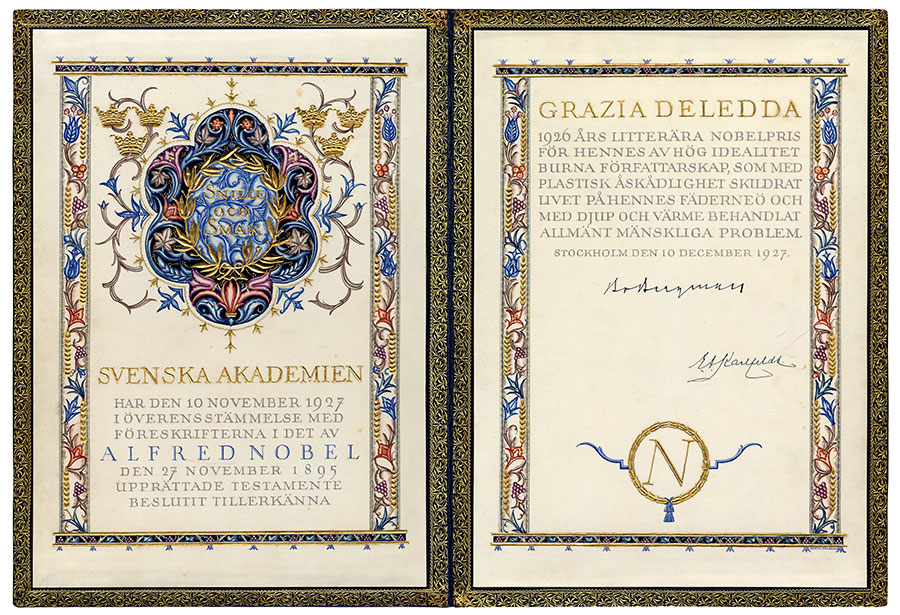 SNILLE
OCH
SMAK
SVENSKA AKADEMIEN
HAR DEN 10 NOVEMBER 1927
I ÖVERENSSTÄMMELSE MED
FÖRESKRIFTERNA I DET AV
ALFRED NOBEL
DEN 27 NOVEMBER 1895
UPPRÄTTADE TESTAMENTE
BESLUTIT TILLERKÄNNA
GRAZIA DELEDDA
1926 ÅRS LITTERÄRA NOBELPRIS
FÖR HENNES AV HÖG IDEALITET
BURNA FÖRFATTARSKAP, SOM MED
PLASTISK ÅSKÅDLIGHET SKILDRAT
LIVET PÅ HENNES FÄDERNEÖ OCH
MED DJUP OCH VÄRME BEHANDLAT
ALLMÄNT MÄNSKLIGA PROBLEM.
STOCKHOLM DEN 10 DECEMBER 1927.
E A Karlfeldt
N